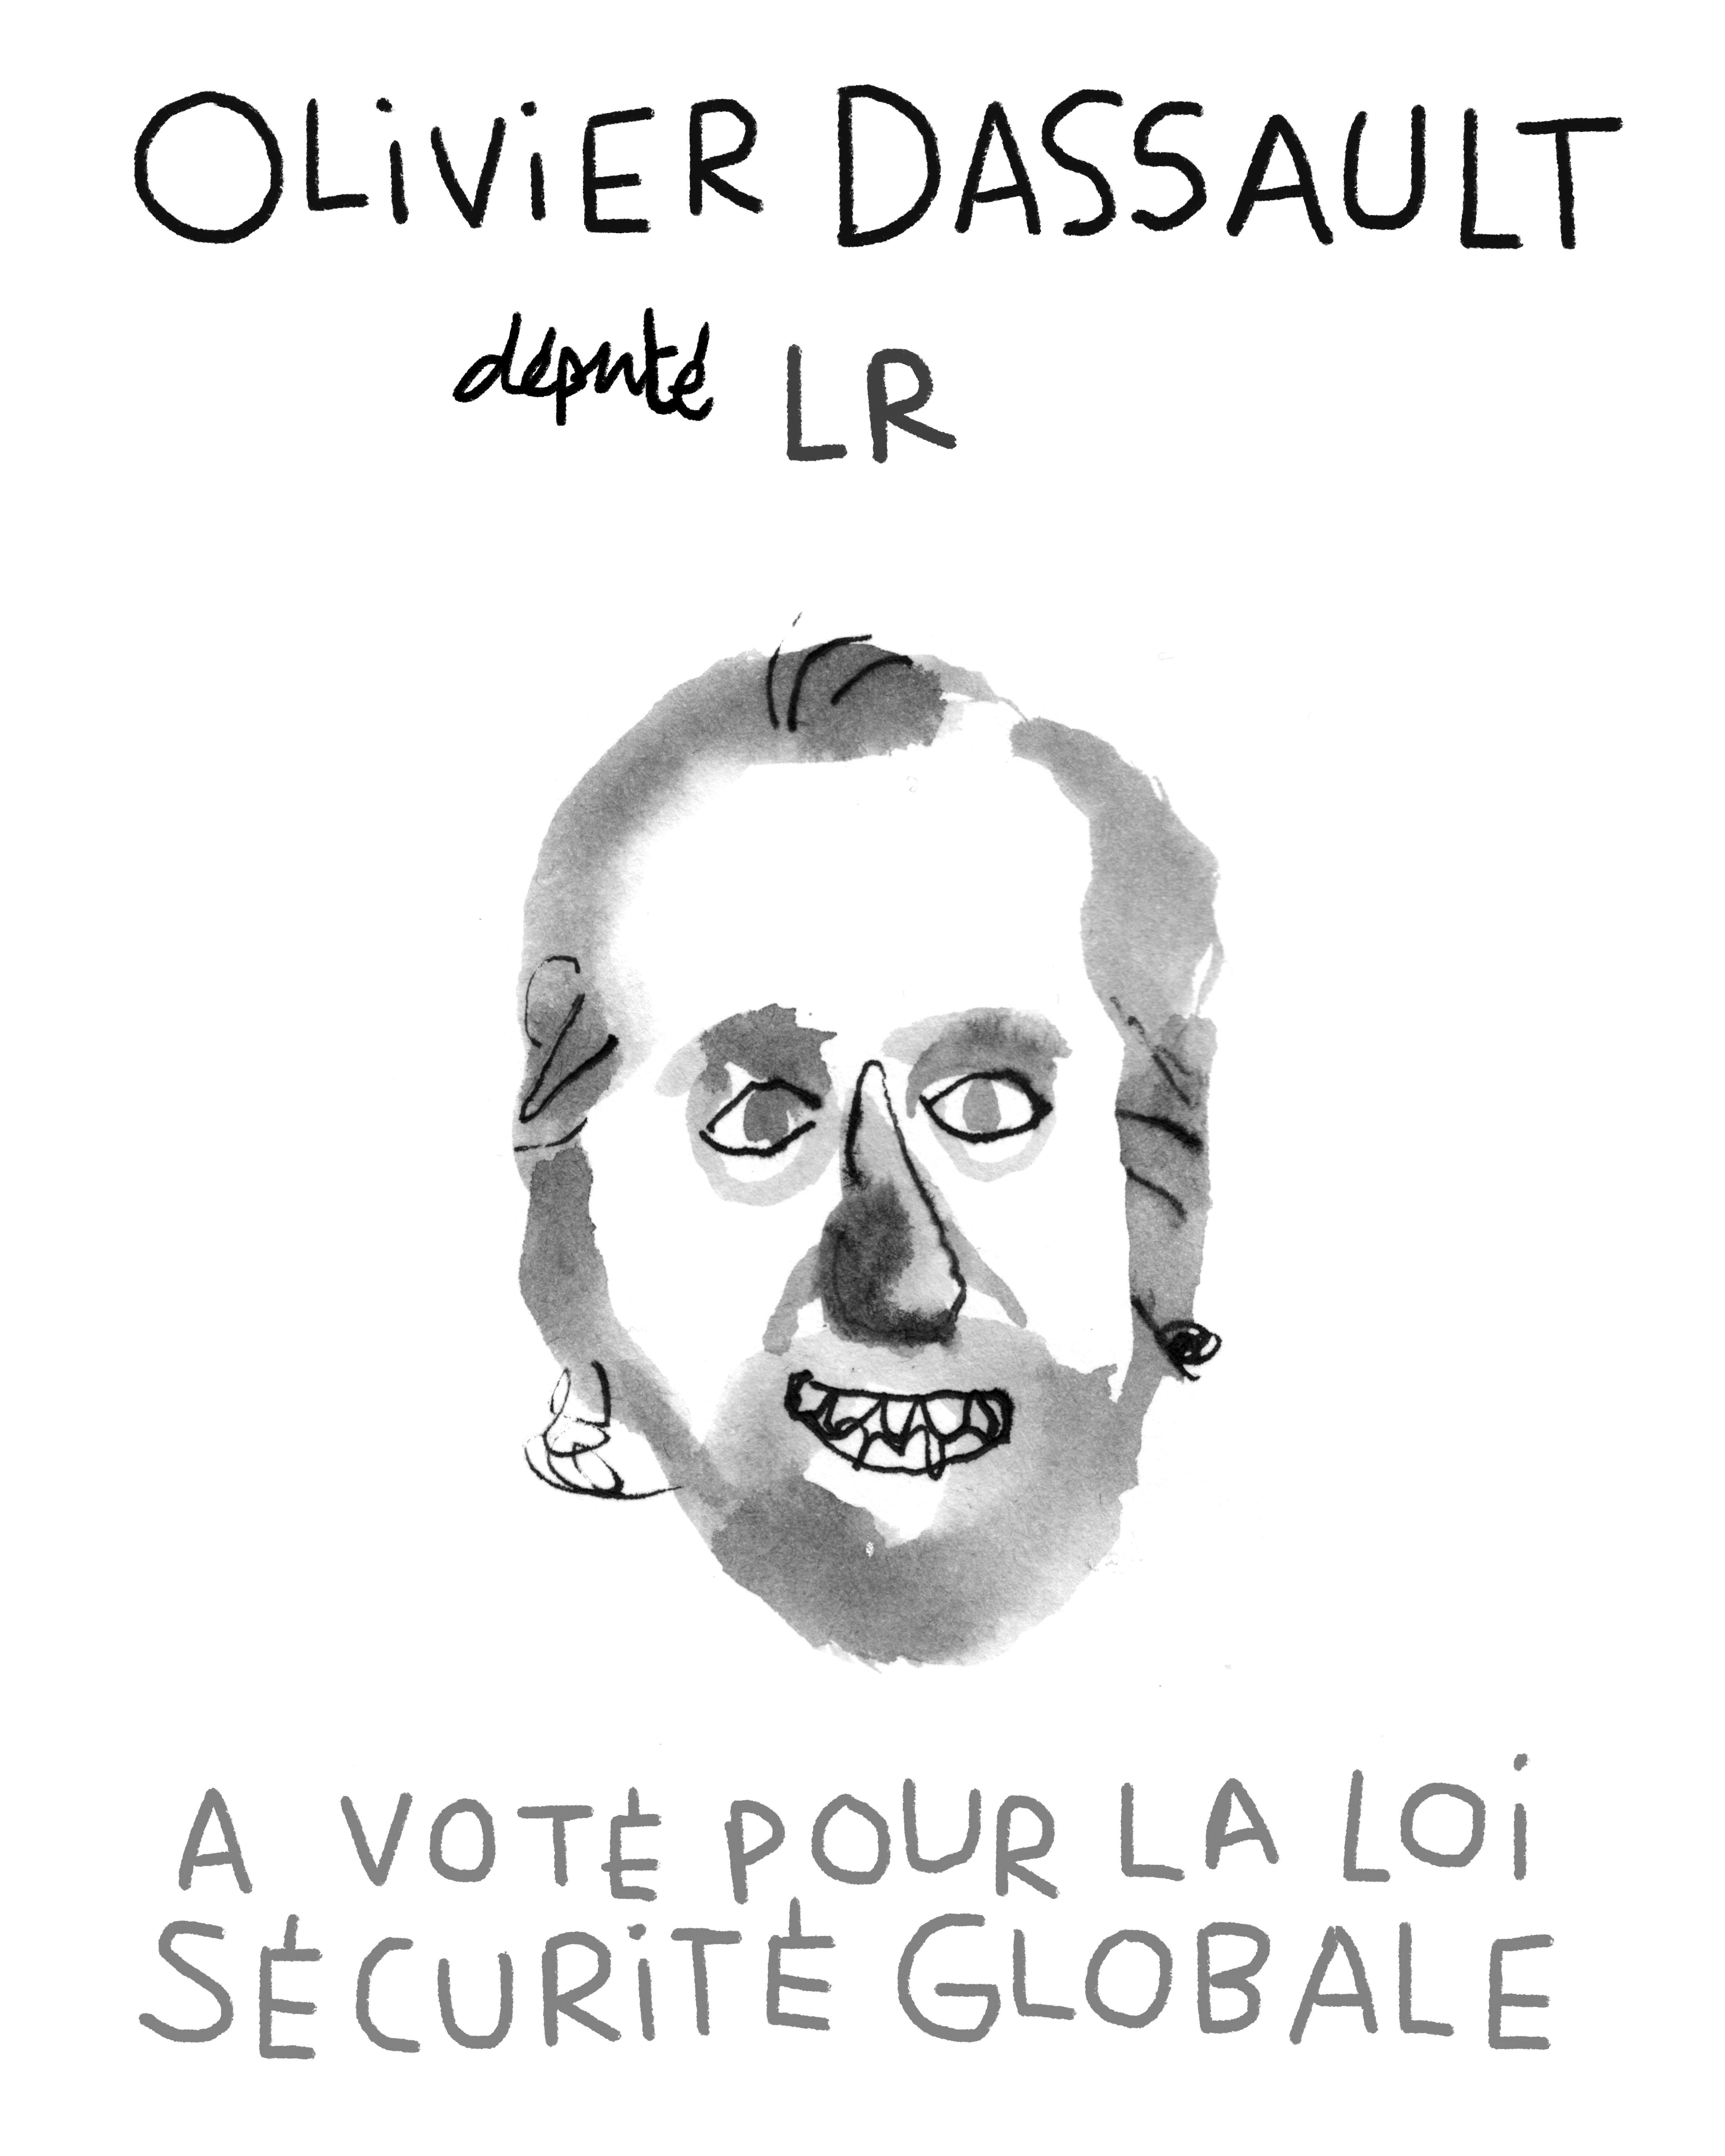 OLiViER DASSAULT
député LR
A VOTÉ POUR LA LOi
SÉCURiTÉ GLOBALE